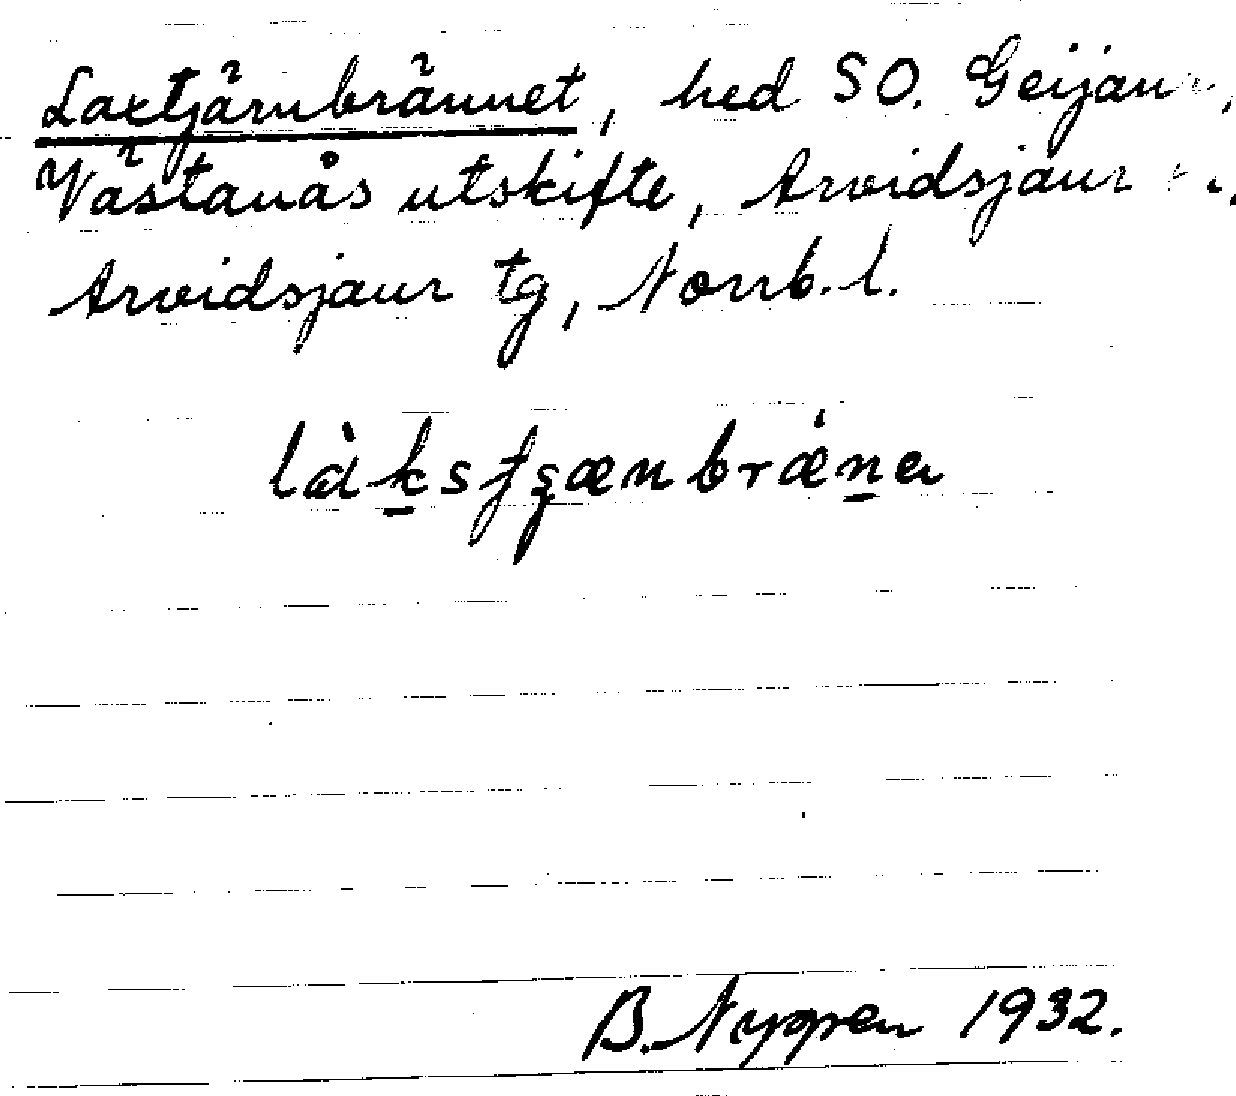 Laxtjärnbrännet, hed SO. Geijaur,
Västanås utskifte, Arvidsjaur
Arvidsjaur tg, Norrb. l.
B. Nygren 1932.